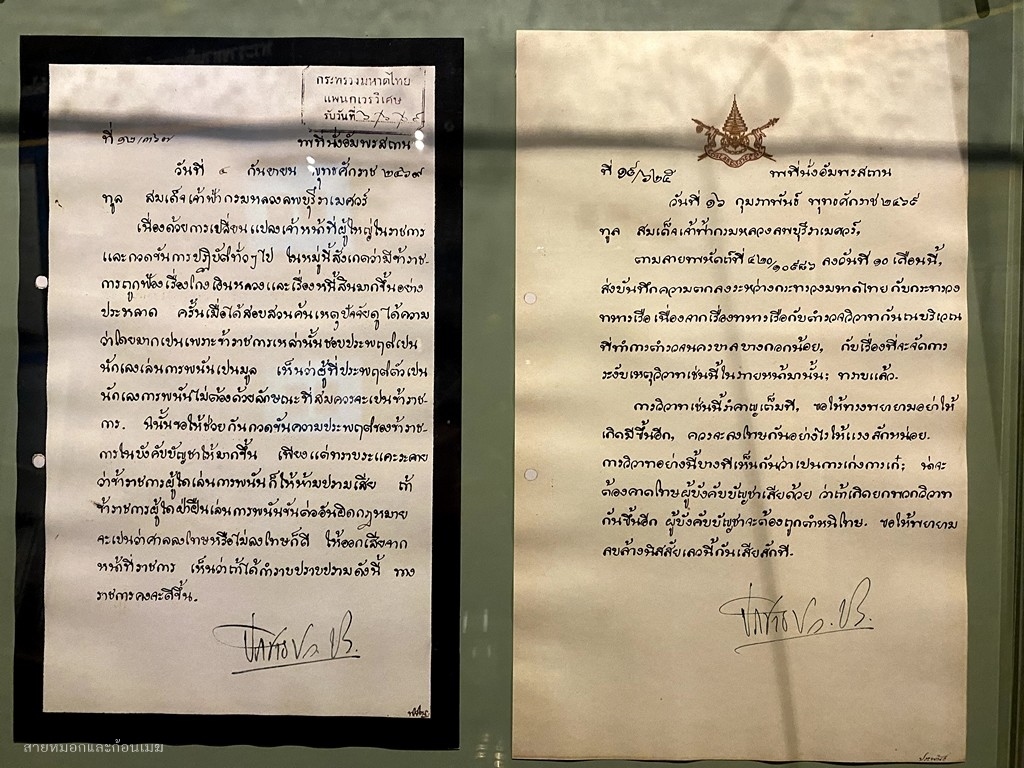 กระทรวงมหาดไทย
แผนกเวรวิเศษ
รับวันที่
ที่ ๑๒/๓๖๗
พระที่นั่งอัมพรสถาน
วันที่ ๔ กันยายน พุทธศักราช ๒๔๖๙
ทูล สมเด็จเจ้าฟ้ากรมหลวงลพบุรีราเมศวร์
เนื่องด้วยการเปลี่ยนแปลงเจ้าหน้าที่ผู้ใหญ่ในราชการ
และกวดขันการปฏิบัติทั่วๆไป ในหมู่นี้สังเกตว่ามีข้าราช-
การถูกฟ้องเรื่องโกงเงินหลวงและเรื่องหนี้สินมากขึ้นอย่าง
ประหลาด ครั้นเมื่อได้สอบสวนค้นเหตุปัจจัยดู ได้ความ
ว่าโดยมากเปนเพราะข้าราชการเหล่านั้นชอบประพฤติเปน
นักเลงเล่นการพนันเปนมูล เห็นว่าผู้ที่ประพฤติตัวเปน
นักเลงการพนันไม่ต้องด้วยลักษณะที่สมควรจะเปนข้าราช-
การ. ฉนั้นขอให้ช่วยกันกวดขันความประพฤติของข้าราช-
การในบังคับบัญชาให้มากขึ้น เพียงแต่ทราบระแคะระคาย
ว่าข้าราชการผู้ใดเล่นการพนันก็ให้ห้ามปรามเสีย ถ้า
ข้าราชการผู้ใดฝ่าฝืนเล่นการพนันขันต่ออันผิดกฎหมาย
จะเปนว่าศาลลงโทษหรือไม่ลงโทษก็ดี ให้ออกเสียจาก
หน้าที่ราชการ เห็นว่าถ้าได้กำราบปราบปรามดังนี้ ทาง
ราชการคงจะดีขึ้น.
ประชาธิปก ป.ร.
ที่ ๑๙/๖๒๕
พระที่นั่งอัมพรสถาน
วันที่ ๑๖ กุมภาพันธ์ พุทธศักราช ๒๔๖๙
ทูล สมเด็จเจ้าฟ้ากรมหลวงลพบุรีราเมศวร์,
ตามลายพระหัตถ์ที่ ๔๒๐/๑๐๕๘๖ ลงวันที่ ๑๐ เดือนนี้,
ส่งบันทึกความตกลงระหว่างกระทรวงมหาดไทยกับกระทรวง
ทหารเรือ เนื่องจากเรื่องทหารเรือกับตำรวจวิวาทกันณบริเวณ
ที่ทำการตำรวจนครบาลบางกอกน้อย, กับเรื่องที่จะจัดการ
ระงับเหตุวิวาทเช่นนี้ในภายหน้ามานั้น; ทราบแล้ว.
การวิวาทเช่นนี้รำคาญเต็มที, ขอให้ทรงพยายามอย่าให้
เกิดมีขึ้นอีก, ควรจะลงโทษกันอย่างไรให้แรงสักหน่อย.
การวิวาทอย่างนี้บางทีเห็นกันว่าเปนการเก่งการเก๋; น่าจะ
ต้องคาดโทษผู้บังคับบัญชาเสียด้วย ว่าถ้าเกิดยกพวกวิวาท
กันขึ้นอีก ผู้บังคับบัญชาจะต้องถูกตำหนิโทษ. ขอให้พยายาม
ลบล้างนิสสัยเลวนี้กันเสียสักที.
ประชาธิปก ป.ร.
สายหมอกและก้อนเมฆ